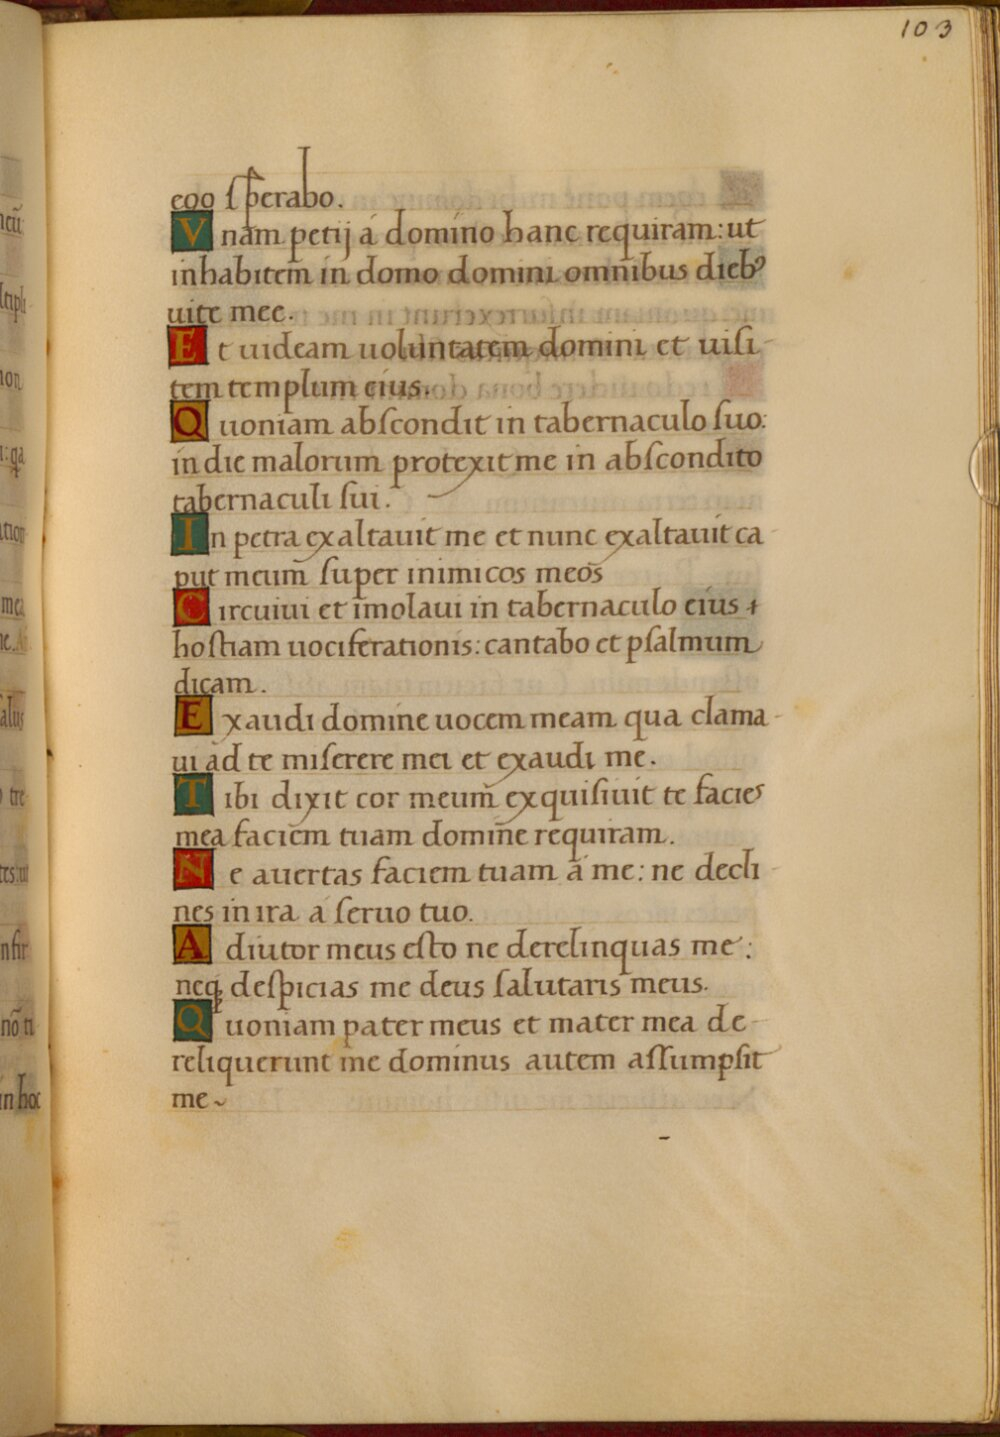 103
ego sperabo.
Vnam petij á domino hanc requiram: ut
inhabitem in domo domini omnibus dieb⁹
uite mee.
Et uideam uoluntatem domini et uisi-
tem templum eius.
Quoniam abscondit in tabernaculo suo:
in die malorum protexit me in abscondito
tabernaculi sui.
In petra exaltauit me et nunc exaltauit ca
put meum super inimicos meos
Circuiui et imolaui in tabernaculo eius
hostiam uociferationis: cantabo et psalmum
dicam.
Exaudi domine uocem meam qua clama-
ui ad te miserere mei et exaudi me.
Tibi dixit cor meum exquisiuit te facies
mea faciem tuam domine requiram.
Ne auertas faciem tuam á me: ne decli-
nes in ira á seruo tuo.
Adiutor meus esto ne derelinquas me:
neq; despicias me deus salutaris meus.
Quoniam pater meus et mater mea de-
reliquerunt me dominus autem assumpsit
me